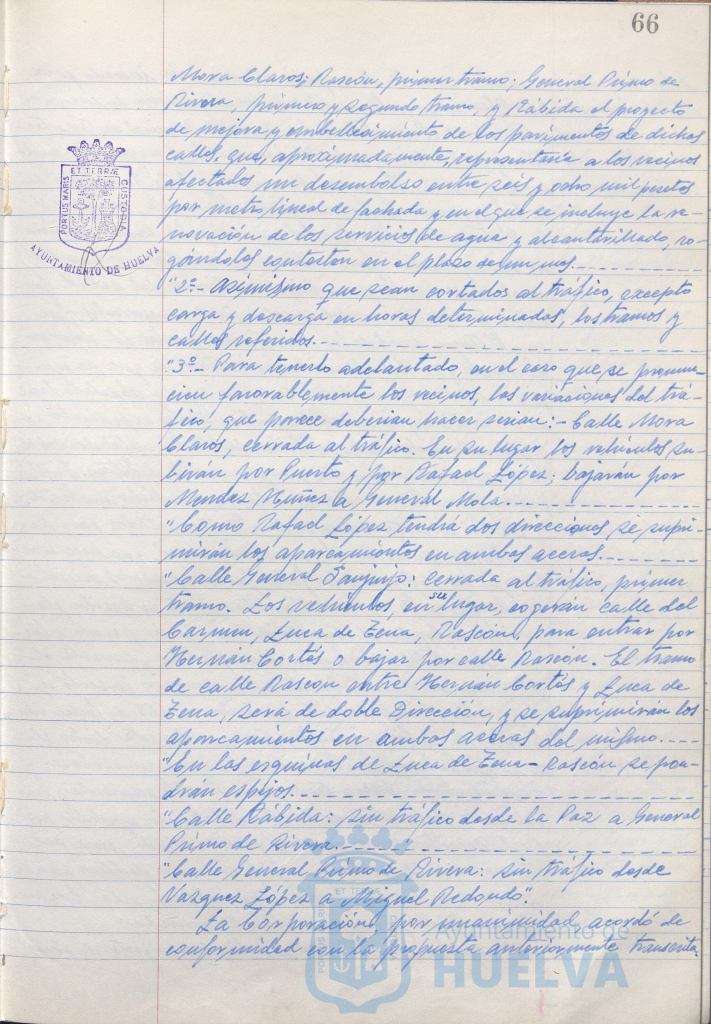 66
Mora Claros; Rascón, primer tramo; General Primo de
Rivera, primero y segundo tramo, y Rábida el proyecto
de mejora y embellecimiento de los pavimentos de dichas
calles, que, aproximadamente, representaría a los vecinos
afectados un desembolso entre seis y ocho mil pesetas
por metro lineal de fachada y en el que se incluye la re-
novación de los servicios de agua y alcantarillado, ro-
gándoles contesten en el plazo de un mes.
"2º.- Asimismo que sean cortados al tráfico, excepto
carga y descarga en horas determinadas, los tramos y
calles referidos.
"3º.- Para tenerlo adelantado, en el caso que se pronun-
cien favorablemente los vecinos, las variaciones del trá-
fico, que parece deberían hacer serían:- Calle Mora
Claros, cerrada al tráfico. En su lugar los vehículos su-
birán por Puerto y por Rafael López; bajarán por
Mendez Nuñez a General Mola.
"Como Rafael López tendrá dos direcciones se supri-
mirán los aparcamientos en ambas aceras.
"Calle General Sanjurjo: cerrada al tráfico, primer
tramo. Los vehículos, en su lugar, cogerán calle del
Carmen, Luca de Tena, Rascón, para entrar por
Hernán Cortés o bajar por calle Rascón. El tramo
de calle Rascon entre Hernán Cortés y Luca de
Tena, será de doble Dirección, y se suprimirán los
aparcamientos en ambas aceras del mismo.
"En las esquinas de Luca de Tena- Rascón se pon-
drán espejos.
"Calle Rábida: sin tráfico desde la Paz a General
Primo de Rivera.
"Calle General Primo de Rivera: sin tráfico desde
Vazquez López a Miguel Redondo".
La Corporación, por unanimidad acordó de
conformidad con la propuesta anteriormente transcrita.
PORTUS MARIS
ET TERRÆ
CUSTODIA
AYUNTAMIENTO DE HUELVA
Ayuntamiento de
HUELVA